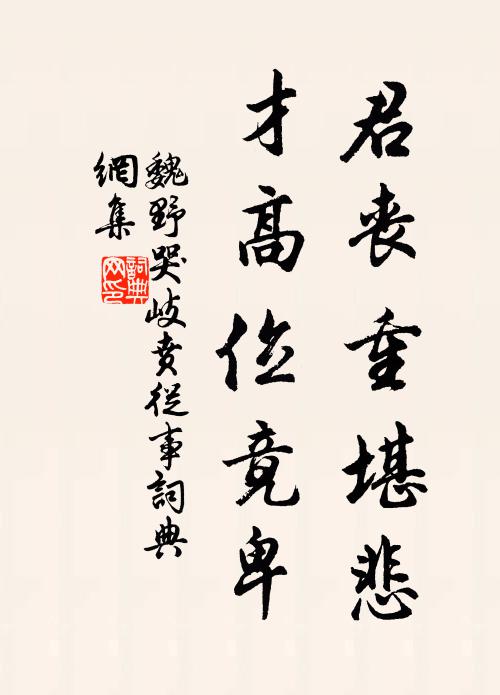 君喪重堪悲
才高位竟卑
魏野哭岐賁從事詞典
網集
詞典
网印